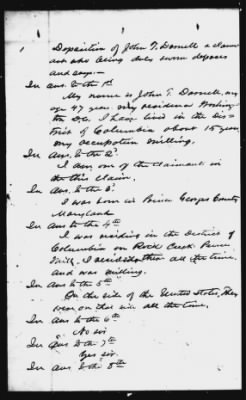 Deposition of John T. Darnell a claim
ant who being duly sworn deposes
and says:—
In ans. to the 1st
My name is John T. Darnell, my
age 47 years my residence Washing-
ton D.C. I have lived in the Dis-
trict of Columbia about 15 years
my occupation milling.
In Ans. to the 2d
I am one of the claimants in
the this claim.
In Ans. to the 3d
I was born in Prince Georges County
Maryland
In Ans to the 4th
I was residing in the District of
Columbia on Rock Creek Pierces
Mill, I resided there all the time,
and was milling.
In Ans to the 5th
On the side of the United States, They
were on that side all the time.
In Ans to the 6th
No sir
In Ans to the 7th
Yes sir.
In Ans to the 8th